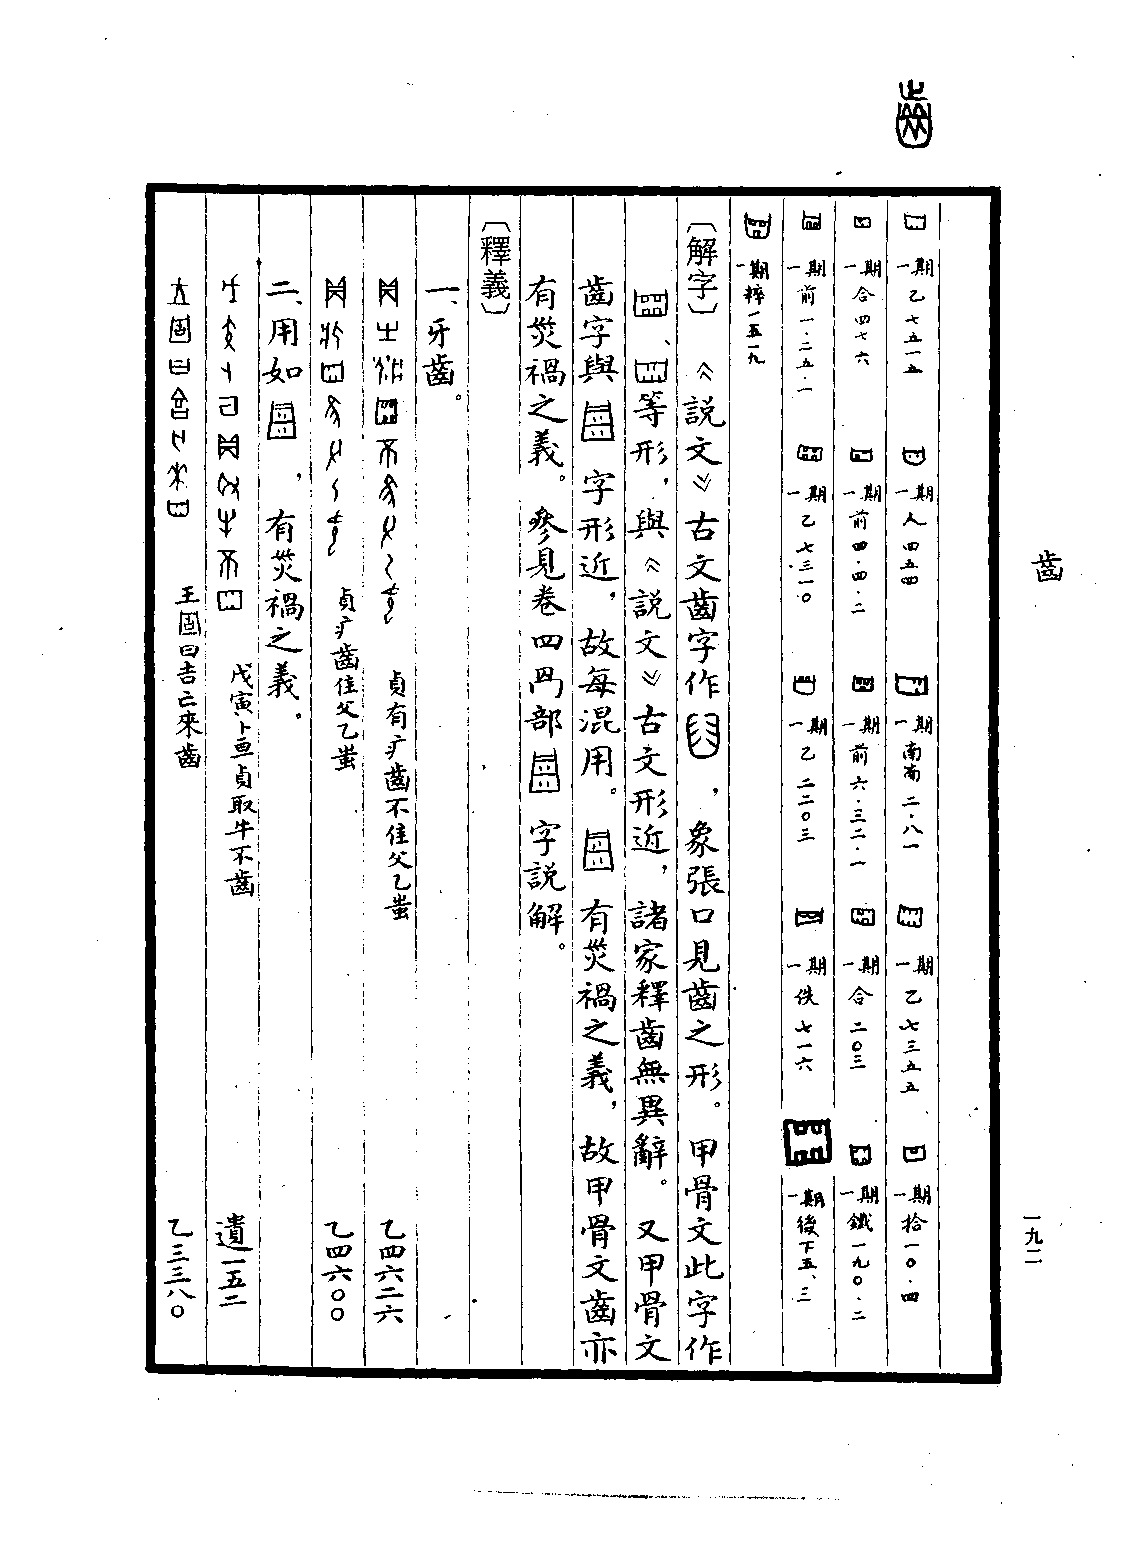 齒
一九二
一期乙七五一五
一期人四五四
一期南南二·八一
一期乙七三五五
一期拾一〇·四
一期合四七六
一期前四·四·二
一期前六·三二·一
一期合二〇三
一期鐵一九〇·二
一期前一·二五·一
一期乙七三一〇
一期乙二二〇三
一期佚七一六
一期後下五、三
一期粹一五一九
〔解字〕《說文》古文齒字作，象張口見齒之形。甲骨文此字作
、等形，與《說文》古文形近，諸家釋齒無異辭。又甲骨文
齒字與字形近，故每混用。有災禍之義，故甲骨文齒亦
有災禍之義。參見卷四冎部字說解。
〔釋義〕
一、牙齒。
貞有疒齒不隹父乙蚩 乙四六二六
貞疒齒隹父乙蚩 乙四六〇〇
二、用如，有災禍之義。
戊寅卜亘貞取牛不齒 遺一五二
王固曰吉亡來齒 乙三三八〇